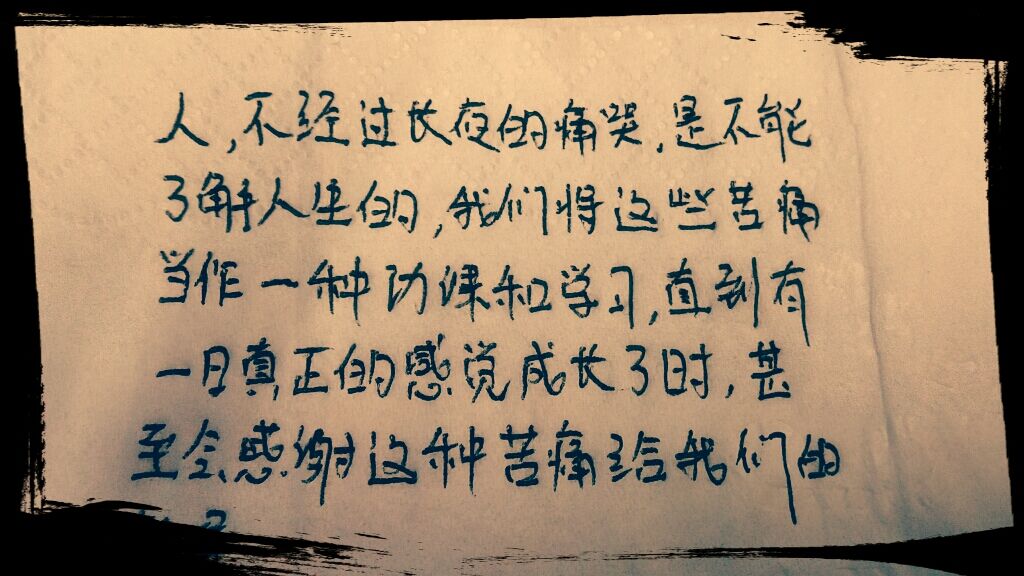 人,不经过长夜的痛哭,是不能
了解人生的,我们将这些苦痛
当作一种功课和学习,直到有
一日真正的感觉成长了时,甚
至会感谢这种苦痛给我们的